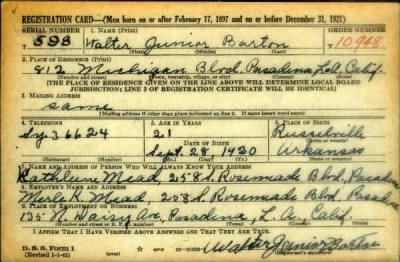 REGISTRATION CARD—(Men born on or after February 17, 1897 and on or before December 31, 1921)
SERIAL NUMBER 1. NAME (Print) ORDER NUMBER
598 Walter Junior Barton 10948
(First) (Middle) (Last)
2. PLACE OF RESIDENCE (Print)
812 Michigan Blvd. Pasadena, L.A. Calif.
(Number and street) (Town, township, village, or city) (County) (State)
[THE PLACE OF RESIDENCE GIVEN ON THE LINE ABOVE WILL DETERMINE LOCAL BOARD
JURISDICTION; LINE 2 OF REGISTRATION CERTIFICATE WILL BE IDENTICAL]
3. MAILING ADDRESS
same
[Mailing address if other than place indicated on line 2. If same insert word same]
4. TELEPHONE 5. AGE IN YEARS 6. PLACE OF BIRTH
Sy. 36624 21 Russelville
DATE OF BIRTH (Town or county)
Sept. 28 1920 Arkansas
(Exchange) (Number) (Mo.) (Day) (Yr.) (State or country)
7. NAME AND ADDRESS OF PERSON WHO WILL ALWAYS KNOW YOUR ADDRESS
Kathleen Mead, 258 S. Rosemead Blvd, Pasadena
8. EMPLOYER'S NAME AND ADDRESS
Merle R. Mead, 258 S. Rosemead Blvd, Pasadena
9. PLACE OF EMPLOYMENT OR BUSINESS
135 N. Daisy Av, Pasadena, L. A. Calif.
(Number and street or R. F. D. number) (Town) (County) (State)
I AFFIRM THAT I HAVE VERIFIED ABOVE ANSWERS AND THAT THEY ARE TRUE.
D. S. S. Form 1
(Revised 1-1-42) (over) Walter Junior Barton